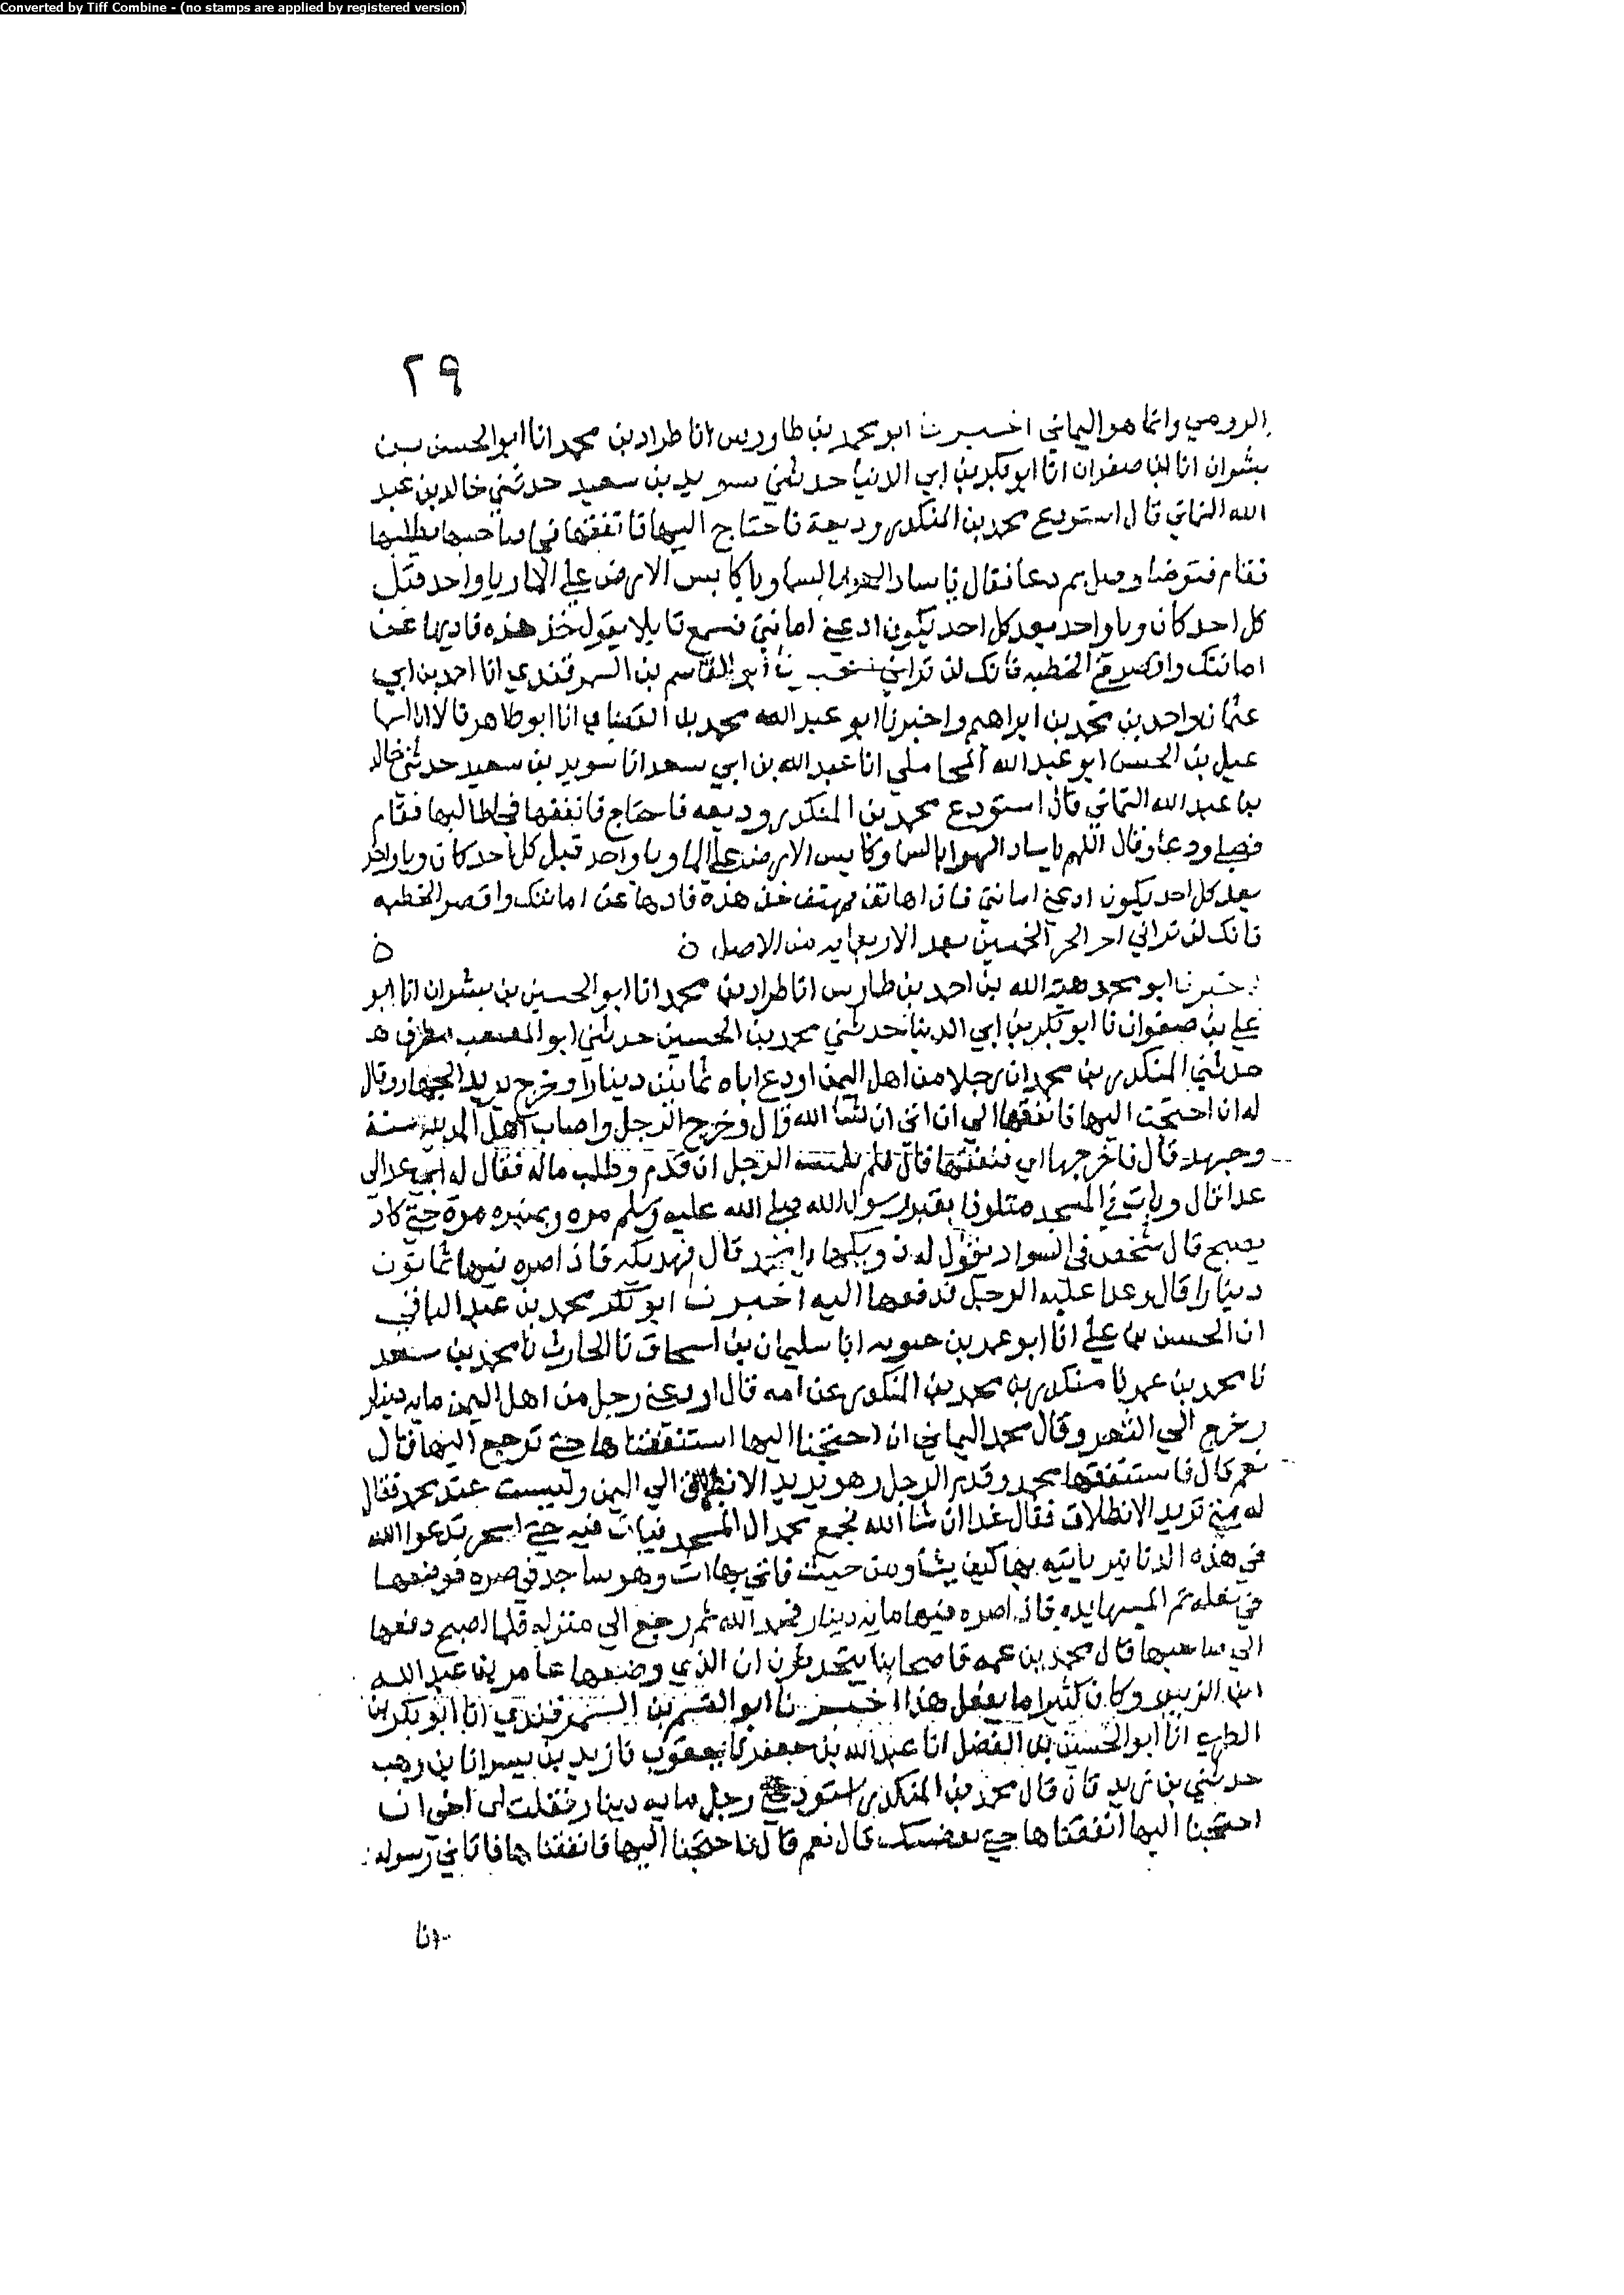 Converted by Tiff Combine - (no stamps are applied by registered version)
٢٩
الرومي وانما هو اليماني اخبرنا ابو محمد بن طاوس انا طراد بن محمد انا ابو الحسن بن
بشران انا ابن صفوان انا ابو بكر بن ابي الدنيا حدثني سويد بن سعيد حدثني خالد بن عبد
الله قال استودع محمد بن المنكدر وديعة فاحتاج اليها فانفقها صاحبها يطلبها
فقام فتوضا وصلى ثم دعا فقال يا ساد الهوا بالسما ويا كابس الارض على الما ويا واحد قبل
كل احد كان ويا واحد بعد كل احد يكون اد عني امانتي فسمع قايلا يقول خذ هذه فادها عن
امانتك واقصر في الخطبه فانك لن تراني القاسم بن السمرقندي انا احمد بن ابي
عثمان واحمد بن محمد بن ابراهيم واخبرنا ابو عبد الله محمد بن انا ابو طاهر قالا انا اسما
عيل بن الحسن ابو عبد الله المحاملي انا عبد الله بن ابي سعد انا سويد بن سعيد حدثني خالد
بن عبد الله قال استودع محمد بن المنكدر وديعه فاحتاج فانفقها فجا طالبها فقام
فصلى ودعا وقال اللهم يا ساد الهوا بالسما وكابس الارض على الما ويا واحد قبل كل احد كان ويا واحد
بعد كل احد يكون اد عني امانتي فاذا هاتف يهتف خذ هذه فادها عن امانتك واقصر الخطبه
فانك لن تراني اخر الجز الخمسين بعد الاربعمايه من الاصل ن
اخبرنا ابو محمد هبة الله بن احمد بن طاوس انا طراد بن محمد انا ابو الحسين بن بشران انا ابو
علي بن صفوان نا ابو بكر بن ابي الدنيا حدثني محمد بن الحسين حدثني ابو المصعب مطرف
حدثني المنكدر بن محمد ان رجلا من اهل اليمن اودع اباه ثمانين دينارا وخرج يريد الجهاد وقال
له ان احتجت اليها فانفقها الى ان اتي ان شا الله قال وخرج الرجل واصاب اهل المدينه سنة
وجهد قال فاخرجها ابي فنفقها قال فلم يلبث الرجل ان قدم وطلب ماله فقال له ابي عد الي
غدا قال وبات في المسجد متلوذا بقبر رسول الله صلى الله عليه وسلم مره وبمنبره مرة حتى كاد
يصبح قال شخص في السواد يقول له يا محمد قال فمد يده فاذا صره فيها ثمانون
دينارا قال وغدا عليه الرجل فدفعها اليه اخبرنا ابو بكر محمد بن عبد الباقي
انا الحسن بن علي انا ابو عمر بن حيويه انا سليمان بن اسحاق نا الحارث نا محمد بن سعد
نا محمد بن عمر نا منكدر بن محمد بن المنكدر عن امه قال اودعني رجل من اهل اليمن مايه دينار
وخرج الى الثغر وقال محمد اليماني ان احتجنا اليها استنفقناها حتى ترجع الينا قال
نعم قال فاستنفقها محمد وقدم الرجل وهو يريد الانطلاق الى اليمن وليست عند محمد فقال
له متى تريد الانطلاق فقال غدا ان شا الله محمد الى المسجد فبات فيه حتى اسحر يدعوا الله
في هذه الدنانير ياتيه بها كيف يشا ومن حيث فاتي بها ات وهو ساجد في صره فوضعها
في نعله ثم المسها يده فاذا صره فيها مايه دينار فحمد الله ثم رجع الى منزله فلما اصبح دفعها
الى صاحبها قال محمد بن عمر فاصحابنا يتحدثون ان الذي وضعها عامر بن عبد الله
ابن الزبير وكان كثيرا ما يفعل هذا اخبرنا ابو القسم بن السمرقندي انا ابو بكر بن
الطبري انا ابو الحسين بن الفضل انا عبد الله بن جعفر نا يعقوب نا زيد بن بشر انا بن وهب
حدثني بن زيد قال قال محمد بن المنكدر استودعني رجل مايه دينار فقلت اي اخي ان
احتجنا اليها انفقناها حتى نعضيك قال نعم قال فاحتجنا اليها فانفقناها فاتاني رسوله